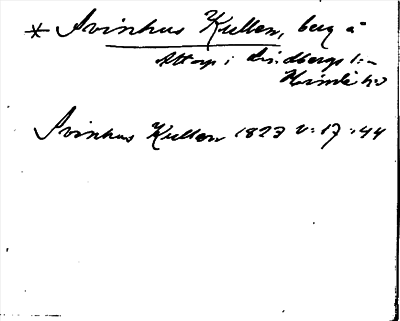 * Svinhus Kullen, berg å
Attorp i Lindbergs s:n
Himle hd
Svinhus Kullen 1823 v: 17: 44